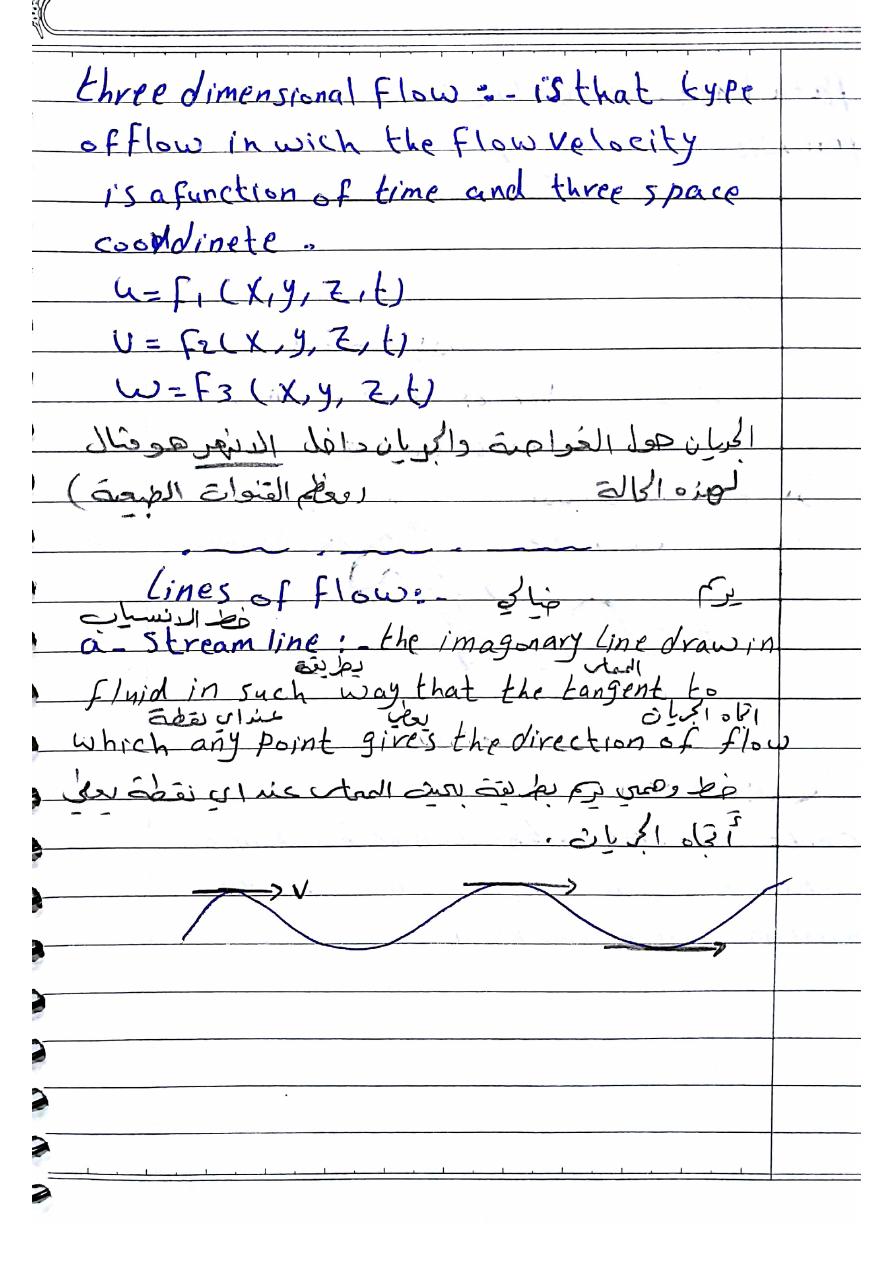 three dimensional flow :- is that type
of flow in wich the flow velocity
is a function of time and three space
coordinete .
u = f1 (x, y, z, t)
v = f2 (x, y, z, t)
w = f3 (x, y, z, t)
الجريان حول الغواصة والجريان داخل الانهر هو مثال
لهذه الحالة (معظم القنوات الطبيعة)
Lines of flow :- خيالي يرسم
خط الانسياب
a - Stream line :- the imagonary line draw in
بطريقة المماس
fluid in such way that the tangent to
عند اي نقطة يعطي اتجاه الجريان
which any point gives the direction of flow
خط وهمي يرسم بطريقة بحيث المماس عند اي نقطة يعطي
أتجاه الجريان .
V